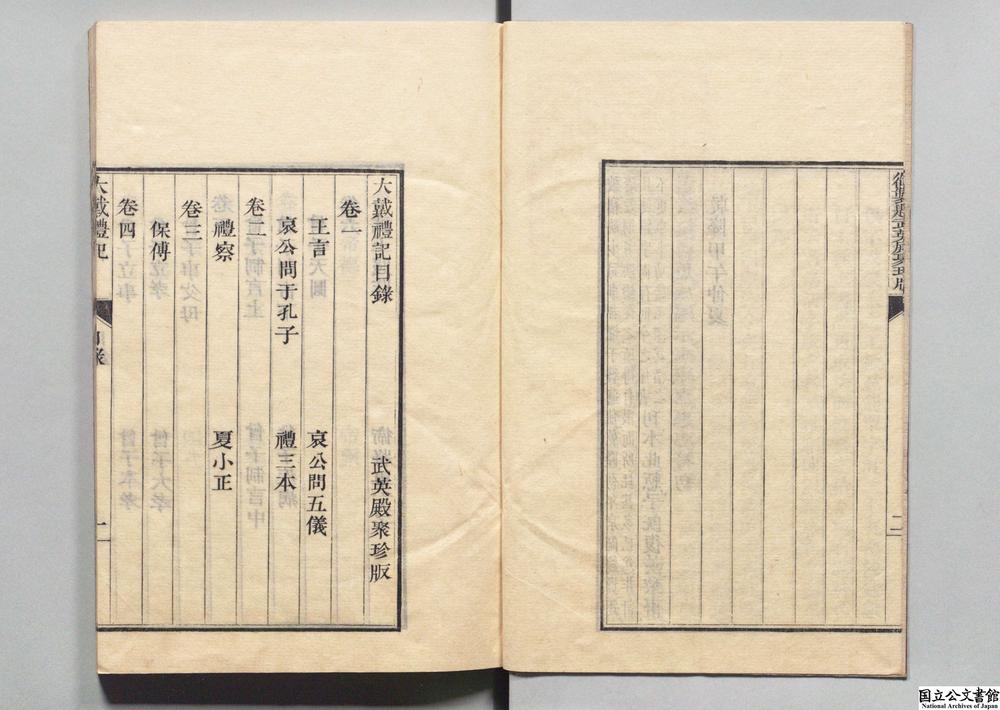 二
大戴禮記目錄 武英殿聚珍版
卷一
王言 哀公問五儀
哀公問于孔子 禮三本
卷二
禮察 夏小正
卷三
保傅
卷四
大戴禮記
目錄
二
国立公文書館
National Archives of Japan